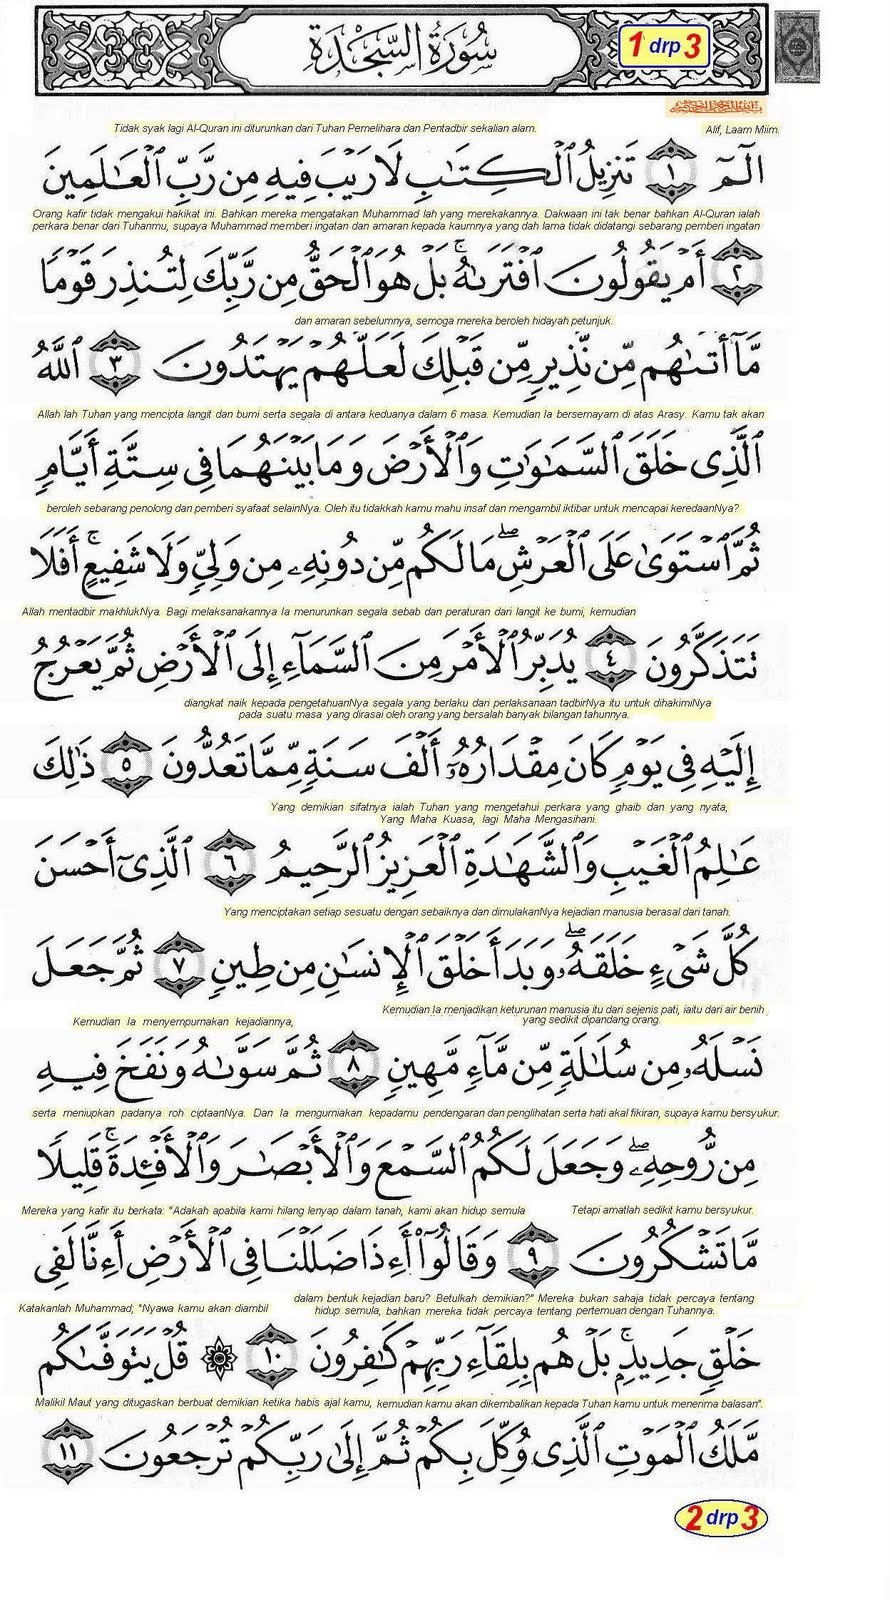 سُورَةُ السَّجْدَةِ
1 drp 3
Tidak syak lagi Al-Quran ini diturunkan dari Tuhan Pemelihara dan Pentadbir sekalian alam.
Alif, Laam Miim.
الٓمٓ ١ تَنزِيلُ ٱلْكِتَٰبِ لَا رَيْبَ فِيهِ مِن رَّبِّ ٱلْعَٰلَمِينَ
Orang kafir tidak mengakui hakikat ini. Bahkan mereka mengatakan Muhammad lah yang merekakannya. Dakwaan ini tak benar bahkan Al-Quran ialah
perkara benar dari Tuhanmu, supaya Muhammad memberi ingatan dan amaran kepada kaumnya yang dah lama tidak didatangi sebarang pemberi ingatan
٢ أَمْ يَقُولُونَ ٱفْتَرَىٰهُ ۚ بَلْ هُوَ ٱلْحَقُّ مِن رَّبِّكَ لِتُنذِرَ قَوْمًا
dan amaran sebelumnya, semoga mereka beroleh hidayah petunjuk.
مَّآ أَتَىٰهُم مِّن نَّذِيرٍ مِّن قَبْلِكَ لَعَلَّهُمْ يَهْتَدُونَ ٣ ٱللَّهُ
Allah lah Tuhan yang mencipta langit dan bumi serta segala di antara keduanya dalam 6 masa. Kemudian Ia bersemayam di atas Arasy. Kamu tak akan
ٱلَّذِى خَلَقَ ٱلسَّمَٰوَٰتِ وَٱلْأَرْضَ وَمَا بَيْنَهُمَا فِى سِتَّةِ أَيَّامٍ
beroleh sebarang penolong dan pemberi syafaat selainNya. Oleh itu tidakkah kamu mahu insaf dan mengambil iktibar untuk mencapai keredaanNya?
ثُمَّ ٱسْتَوَىٰ عَلَى ٱلْعَرْشِ ۖ مَا لَكُم مِّن دُونِهِۦ مِن وَلِىٍّ وَلَا شَفِيعٍ ۚ أَفَلَا
Allah mentadbir makhlukNya. Bagi melaksanakannya Ia menurunkan segala sebab dan peraturan dari langit ke bumi, kemudian
تَتَذَكَّرُونَ ٤ يُدَبِّرُ ٱلْأَمْرَ مِنَ ٱلسَّمَآءِ إِلَى ٱلْأَرْضِ ثُمَّ يَعْرُجُ
diangkat naik kepada pengetahuanNya segala yang berlaku dari perlaksanaan tadbirNya itu untuk dihakimiNya
pada suatu masa yang dirasai oleh orang yang bersalah banyak bilangan tahunnya.
إِلَيْهِ فِى يَوْمٍ كَانَ مِقْدَارُهُۥٓ أَلْفَ سَنَةٍ مِّمَّا تَعُدُّونَ ٥ ذَٰلِكَ
Yang demikian sifatnya ialah Tuhan yang mengetahui perkara yang ghaib dan yang nyata,
Yang Maha Kuasa, lagi Maha Mengasihani.
عَٰلِمُ ٱلْغَيْبِ وَٱلشَّهَٰدَةِ ٱلْعَزِيزُ ٱلرَّحِيمُ ٦ ٱلَّذِىٓ أَحْسَنَ
Yang menciptakan setiap sesuatu dengan sebaiknya dan dimulakanNya kejadian manusia berasal dari tanah.
كُلَّ شَىْءٍ خَلَقَهُۥ ۖ وَبَدَأَ خَلْقَ ٱلْإِنسَٰنِ مِن طِينٍ ٧ ثُمَّ جَعَلَ
Kemudian Ia menjadikan keturunan manusia itu dari sejenis pati, iaitu dari air benih
yang sedikit dipandang orang.
Kemudian Ia menyempurnakan kejadiannya,
نَسْلَهُۥ مِن سُلَٰلَةٍ مِّن مَّآءٍ مَّهِينٍ ٨ ثُمَّ سَوَّىٰهُ وَنَفَخَ فِيهِ
serta meniupkan padanya roh ciptaanNya. Dan Ia mengurniakan kepadamu pendengaran dan penglihatan serta hati akal fikiran, supaya kamu bersyukur.
مِن رُّوحِهِۦ ۖ وَجَعَلَ لَكُمُ ٱلسَّمْعَ وَٱلْأَبْصَٰرَ وَٱلْأَفْـِٔدَةَ ۚ قَلِيلًا
Mereka yang kafir itu berkata: "Adakah apabila kami hilang lenyap dalam tanah, kami akan hidup semula
Tetapi amatlah sedikit kamu bersyukur.
مَّا تَشْكُرُونَ ٩ وَقَالُوٓا۟ أَءِذَا ضَلَلْنَا فِى ٱلْأَرْضِ أَءِنَّا لَفِى
dalam bentuk kejadian baru? Betulkah demikian?" Mereka bukan sahaja tidak percaya tentang
hidup semula, bahkan mereka tidak percaya tentang pertemuan dengan Tuhannya.
Katakanlah Muhammad; "Nyawa kamu akan diambil
خَلْقٍ جَدِيدٍۭ ۚ بَلْ هُم بِلِقَآءِ رَبِّهِمْ كَٰفِرُونَ ١٠ ۞ قُلْ يَتَوَفَّىٰكُم
Malikil Maut yang ditugaskan berbuat demikian ketika habis ajal kamu, kemudian kamu akan dikembalikan kepada Tuhan kamu untuk menerima balasan".
مَّلَكُ ٱلْمَوْتِ ٱلَّذِى وُكِّلَ بِكُمْ ثُمَّ إِلَىٰ رَبِّكُمْ تُرْجَعُونَ ١١
2 drp 3